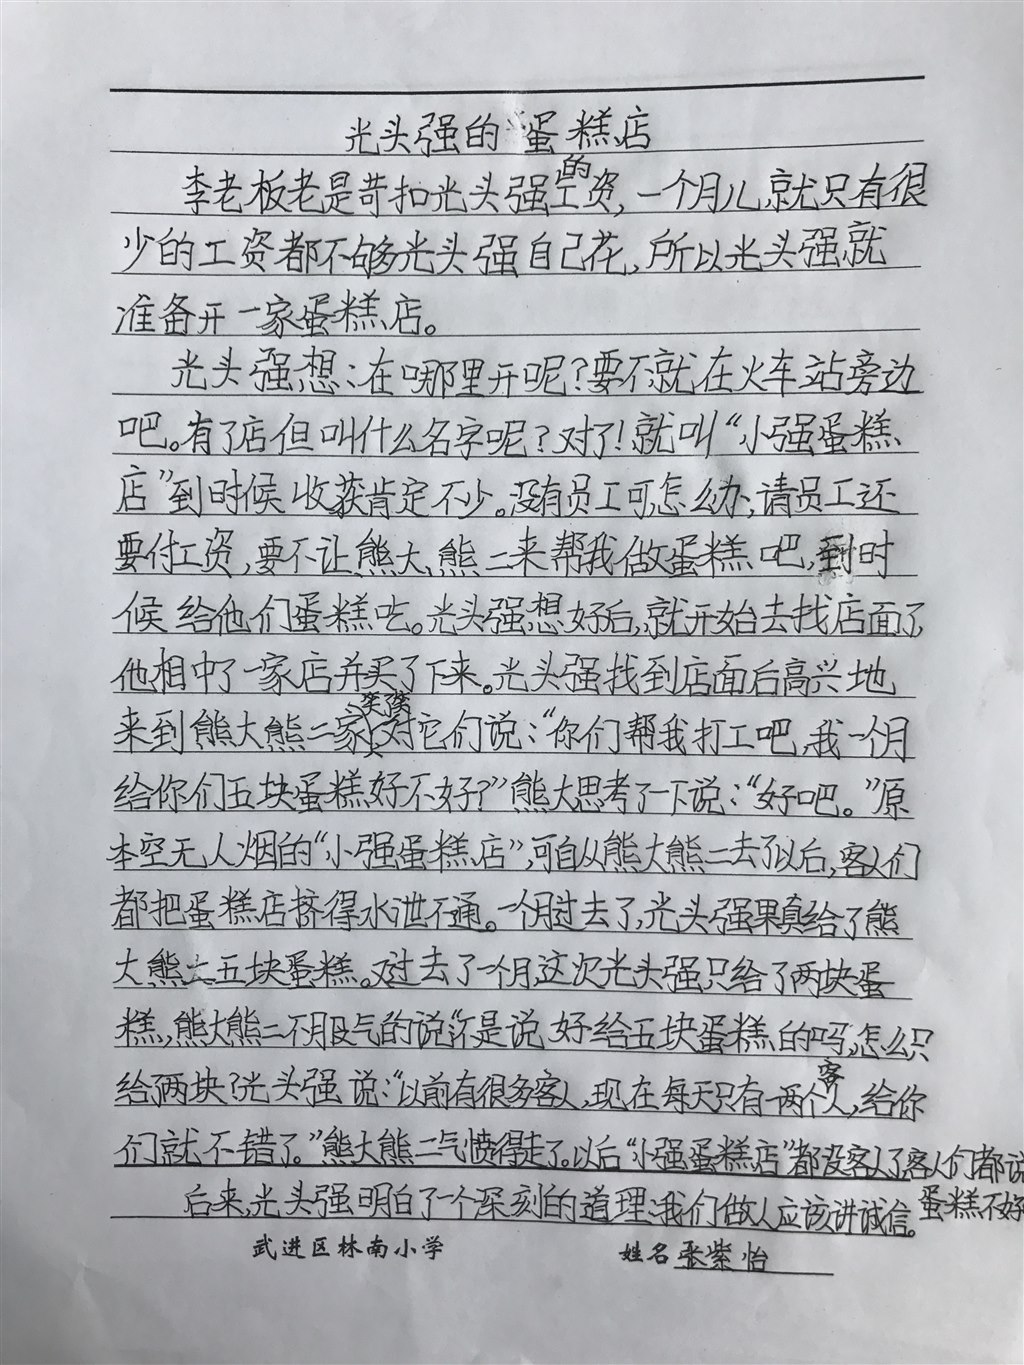 光头强的蛋糕店
李老板老是苛扣光头强的工资,一个月儿就只有很
少的工资都不够光头强自己花,所以光头强就
准备开一家蛋糕店。
光头强想:在哪里开呢?要不就在火车站旁边
吧。有了店但叫什么名字呢?对了!就叫“小强蛋糕
店”到时候收获肯定不少。没有员工可怎么办,请员工还
要付工资,要不让熊大,熊二来帮我做蛋糕吧,到时
候给他们蛋糕吃。光头强想好后,就开始去找店面了,
他相中了一家店并买了下来。光头强找到店面后高兴地
来到熊大熊二家笑嘻嘻对它们说:“你们帮我打工吧,我一个月
给你们五块蛋糕好不好?”熊大思考了一下说:“好吧。”原
本空无人烟的“小强蛋糕店”,可自从熊大熊二去了以后,客人们
都把蛋糕店挤得水泄不通。一个月过去了,光头强果真给了熊
大熊二五块蛋糕。又过去了一个月,这次光头强只给了两块蛋
糕,熊大熊二不服气的说“不是说好给五块蛋糕的吗,怎么只
给两块?光头强说:“以前有很多客人,现在每天只有一两个客人,给你
们就不错了。”熊大熊二气愤得走了。以后“小强蛋糕店”都没客人了客人们都说
蛋糕不好
后来,光头强明白了一个深刻的道理:我们做人应该讲诚信。
武进区林南小学 姓名张紫怡